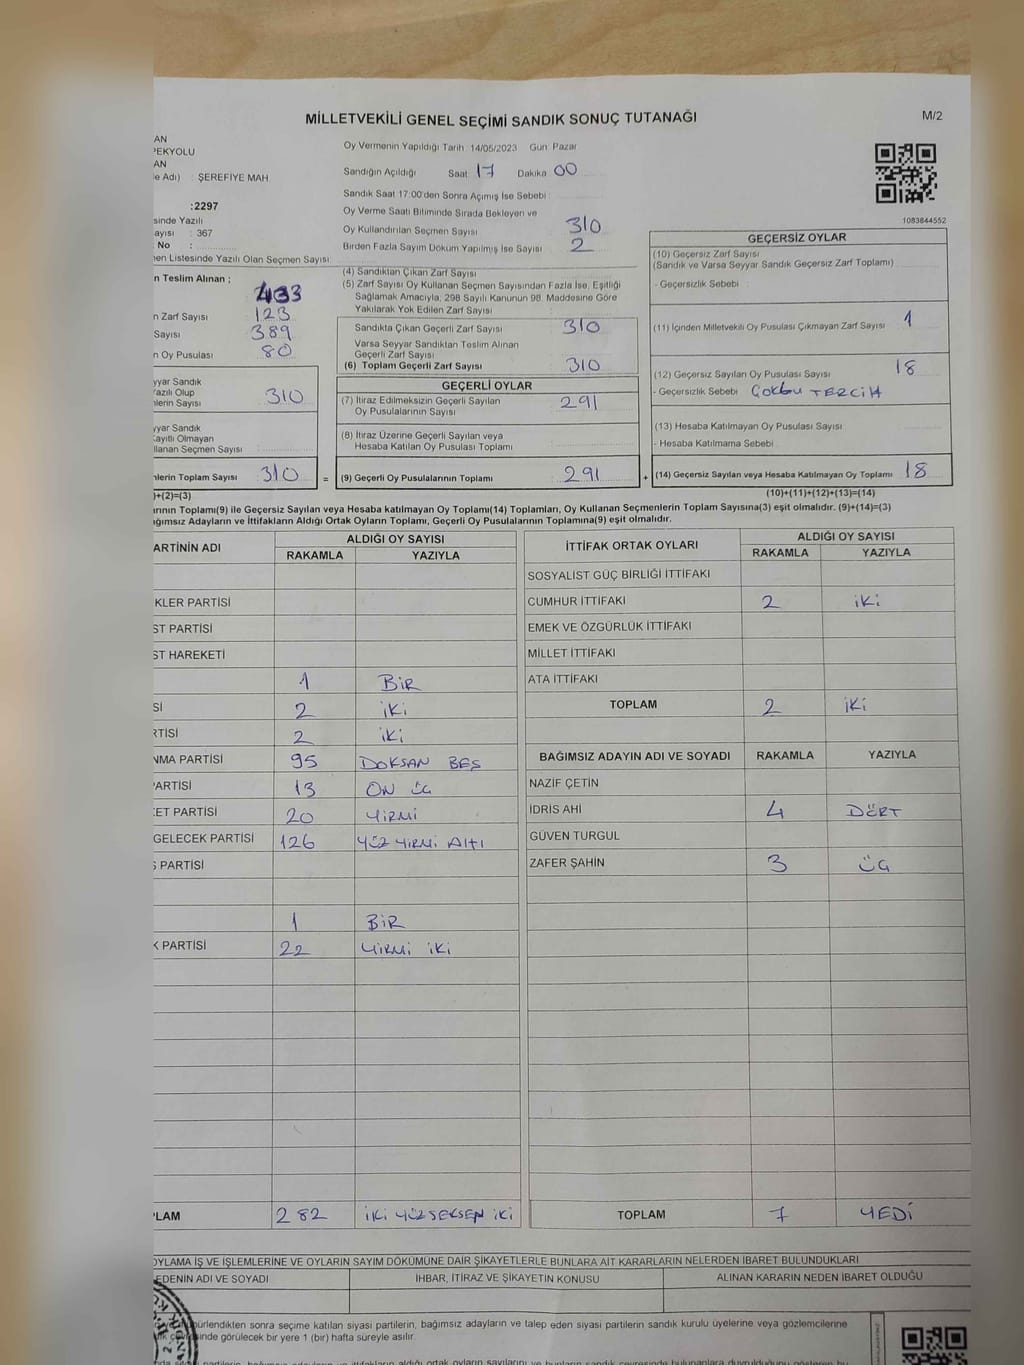 MİLLETVEKİLİ GENEL SEÇİMİ SANDIK SONUÇ TUTANAĞI
M/2
AN
PEKYOLU
AN
e Adı) : ŞEREFİYE MAH
:2297
sinde Yazılı
ayısı : 367
No :
en Listesinde Yazılı Olan Seçmen Sayısı
Oy Vermenin Yapıldığı Tarih :14/05/2023 Gün: Pazar
Sandığın Açıldığı Saat 17 Dakika 00
Sandık Saat 17:00'den Sonra Açımış İse Sebebi :
Oy Verme Saati Bitiminde Sırada Bekleyen ve
Oy Kullandırılan Seçmen Sayısı 310
Birden Fazla Sayım Döküm Yapılmış İse Sayısı 2
1083844552
n Teslim Alınan ;
433
n Zarf Sayısı 123
Sayısı 389
n Oy Pusulası 80
yyar Sandık
azılı Olup
lerin Sayısı 310
yyar Sandık
Kayıtlı Olmayan
llanan Seçmen Sayısı
nlerin Toplam Sayısı 310 =
)+(2)=(3)
(4) Sandıktan Çıkan Zarf Sayısı
(5) Zarf Sayısı Oy Kullanan Seçmen Sayısından Fazla İse, Eşitliği
Sağlamak Amacıyla, 298 Sayılı Kanunun 98. Maddesine Göre
Yakılarak Yok Edilen Zarf Sayısı
Sandıkta Çıkan Geçerli Zarf Sayısı 310
Varsa Seyyar Sandıktan Teslim Alınan
Geçerli Zarf Sayısı
(6) Toplam Geçerli Zarf Sayısı 310
GEÇERLİ OYLAR
(7) İtiraz Edilmeksizin Geçerli Sayılan
Oy Pusulalarının Sayısı 291
(8) İtiraz Üzerine Geçerli Sayılan veya
Hesaba Katılan Oy Pusulası Toplamı
(9) Geçerli Oy Pusulalarının Toplamı 291 +
GEÇERSİZ OYLAR
(10) Geçersiz Zarf Sayısı
(Sandık ve Varsa Seyyar Sandık Geçersiz Zarf Toplamı)
- Geçersizlik Sebebi :
(11) İçinden Milletvekili Oy Pusulası Çıkmayan Zarf Sayısı 1
(12) Geçersiz Sayılan Oy Pusulası Sayısı 18
- Geçersizlik Sebebi ÇOKLU TERCİH
(13) Hesaba Katılmayan Oy Pusulası Sayısı
- Hesaba Katılmama Sebebi
(14) Geçersiz Sayılan veya Hesaba Katılmayan Oy Toplamı 18
(10)+(11)+(12)+(13)=(14)
arının Toplamı(9) ile Geçersiz Sayılan veya Hesaba katılmayan Oy Toplamı(14) Toplamları, Oy Kullanan Seçmenlerin Toplam Sayısına(3) eşit olmalıdır. (9)+(14)=(3)
ağımsız Adayların ve İttifakların Aldığı Ortak Oyların Toplamı, Geçerli Oy Pusulalarının Toplamına(9) eşit olmalıdır.
ARTİNİN ADI
ALDIĞI OY SAYISI
RAKAMLA YAZIYLA
KLER PARTİSİ
ST PARTİSİ
ST HAREKETİ
1 BİR
Sİ 2 İKİ
RTİSİ 2 İKİ
NMA PARTİSİ 95 DOKSAN BEŞ
ARTİSİ 13 ON ÜÇ
ET PARTİSİ 20 YİRMİ
GELECEK PARTİSİ 126 YÜZ YİRMİ ALTI
Ş PARTİSİ
1 BİR
K PARTİSİ 22 YİRMİ İKİ
PLAM 282 İKİ YÜZ SEKSEN İKİ
İTTİFAK ORTAK OYLARI
ALDIĞI OY SAYISI
RAKAMLA YAZIYLA
SOSYALİST GÜÇ BİRLİĞİ İTTİFAKI
CUMHUR İTTİFAKI 2 İKİ
EMEK VE ÖZGÜRLÜK İTTİFAKI
MİLLET İTTİFAKI
ATA İTTİFAKI
TOPLAM 2 İKİ
BAĞIMSIZ ADAYIN ADI VE SOYADI RAKAMLA YAZIYLA
NAZİF ÇETİN
İDRİS AHİ 4 DÖRT
GÜVEN TURGUL
ZAFER ŞAHİN 3 ÜÇ
TOPLAM 7 YEDİ
OYLAMA İŞ VE İŞLEMLERİNE VE OYLARIN SAYIM DÖKÜMÜNE DAİR ŞİKAYETLERLE BUNLARA AİT KARARLARIN NELERDEN İBARET BULUNDUKLARI
EDENİN ADI VE SOYADI İHBAR, İTİRAZ VE ŞİKAYETİN KONUSU ALINAN KARARIN NEDEN İBARET OLDUĞU
ürlendikten sonra seçime katılan siyasi partilerin, bağımsız adayların ve talep eden siyasi partilerin sandık kurulu üyelerine veya gözlemcilerine
sinde görülecek bir yere 1 (bir) hafta süreyle asılır.